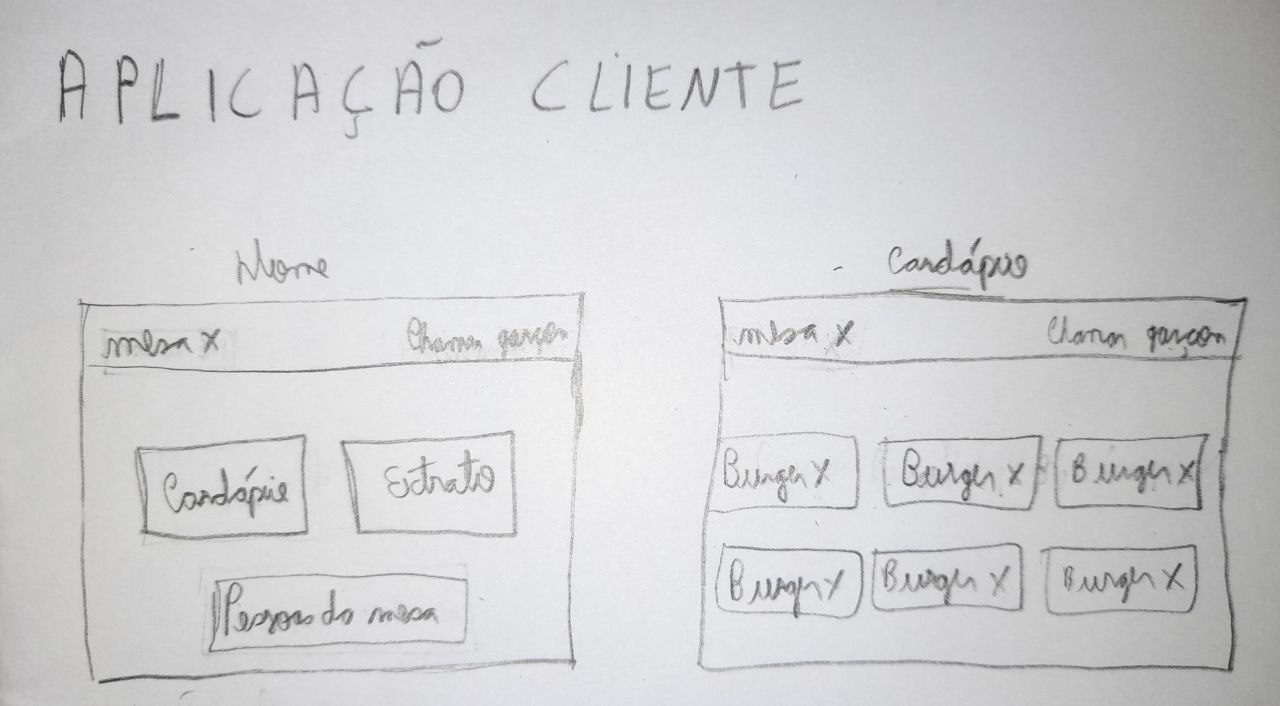 APLICAÇÃO CLIENTE
Home
mesa X Chamar garçon
Cardápio Extrato
Pessoas da mesa
Cardápio
mesa X Chamar garçon
Burger X Burger X Burger X
Burger X Burger X Burger X